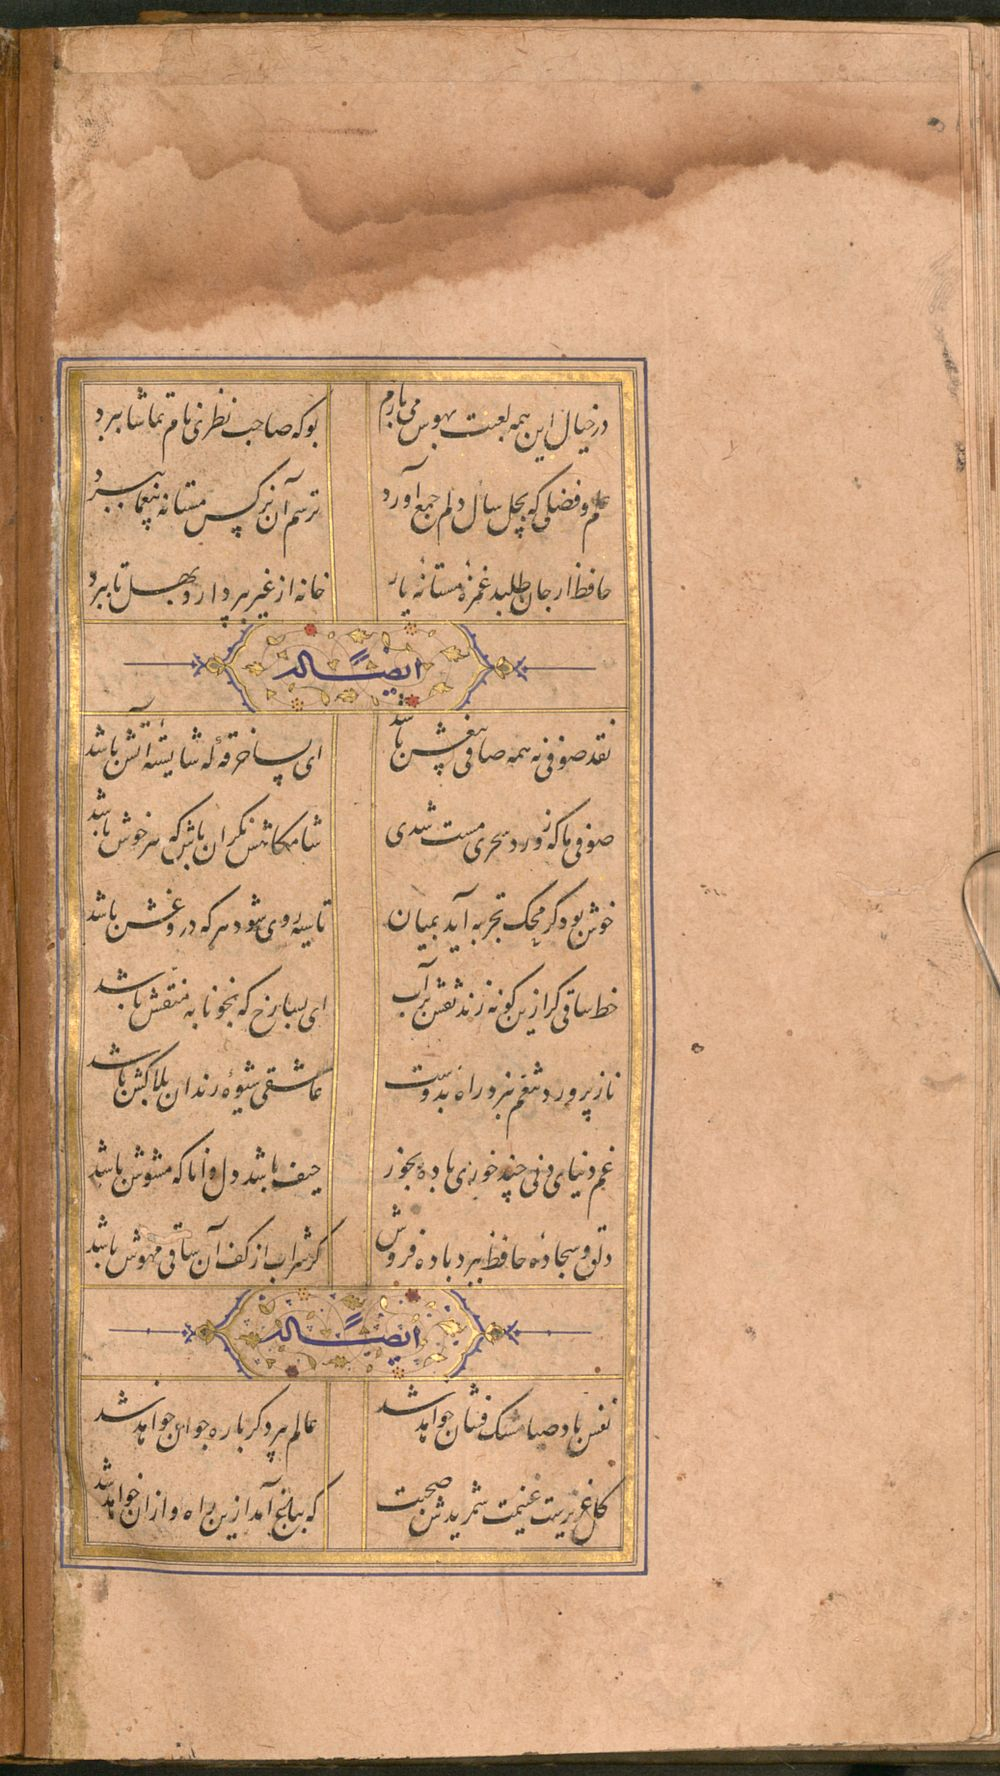 در خیال این همه لعبت بهوس می بازم
بوکه صاحب نظری نام تماشا ببرد
علم و فضلی که بچل سال دلم جمع آورد
ترسم آن نرکس مستانه بیغما ببرد
حافظ ار جان طلبد غمزهٔ مستانهٔ یار
خانه از غیر بپرداز و بهل تا ببرد
ایضاً له
نقد صوفی نه همه صافی بیغش باشد
ای بسا خرقه که شایستهٔ آتش باشد
صوفی ما که ز ورد سحری مست شدی
شامکاهش نکران باش که سرخوش باشد
خوش بود کر محک تجربه آید بمیان
تا سیه روی شود هرکه دروغش باشد
خط ساقی کر ازین کونه زند نقش بر آب
ای بسا رخ که بخونابه منقش باشد
ناز پرورد تنعم نبرد راه بدوست
عاشقی شیوهٔ رندان بلاکش باشد
غم دنیای دنی چند خوری باده بخور
حیف باشد دل دانا که مشوش باشد
دلق و سجادهٔ حافظ ببرد باده فروش
کر شراب از کف آن ساقی مهوش باشد
ایضاً له
نفس باد صبا مشک فشان خواهد شد
عالم پیر دکر باره جوان خواهد شد
کل عزیزست غنیمت شمریدش صحبت
که بباغ آمد ازین راه و ازان خواهد شد